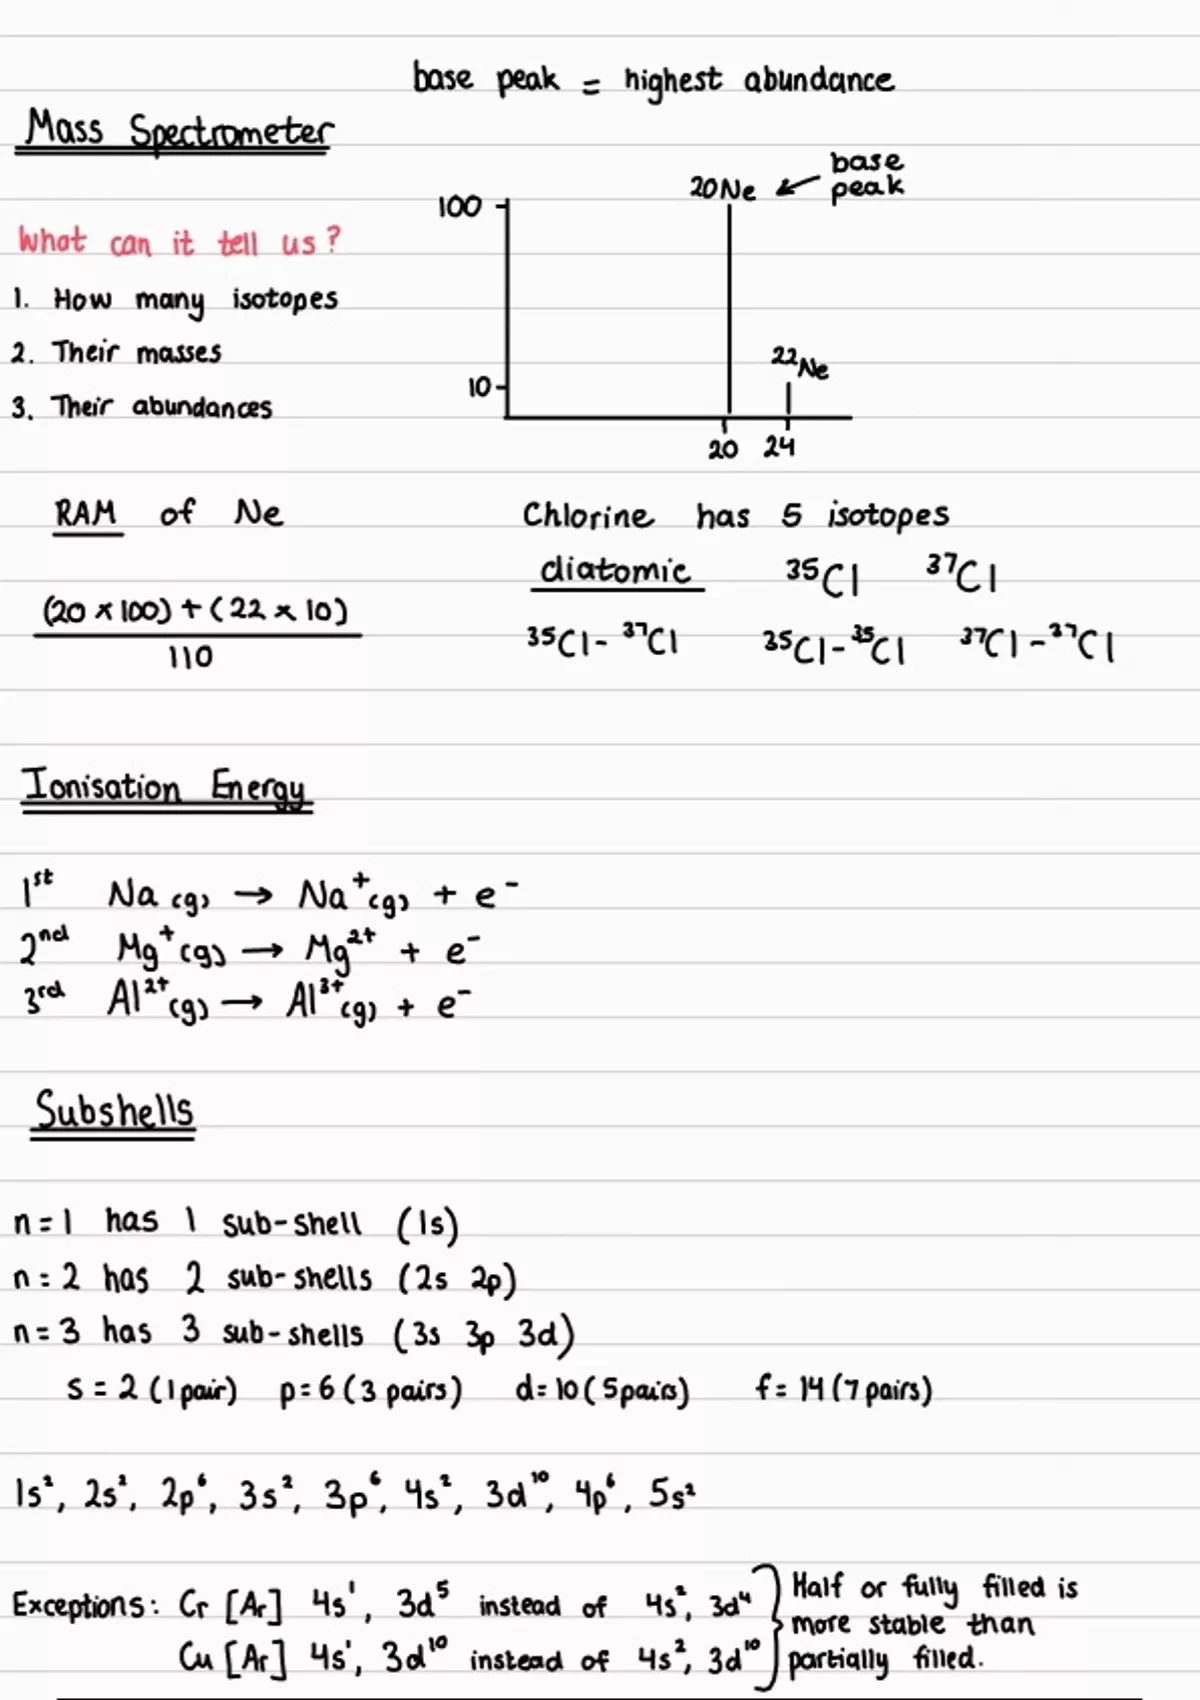 base peak = highest abundance
Mass Spectrometer
What can it tell us?
1. How many isotopes
2. Their masses
3. Their abundances
base
peak
20Ne
100
²²Ne
10
20 24
RAM of Ne
(20 × 100) + (22 × 10)
110
Chlorine has 5 isotopes
diatomic ³⁵Cl ³⁷Cl
³⁵Cl-³⁷Cl ³⁵Cl-³⁵Cl ³⁷Cl-³⁷Cl
Ionisation Energy
1ˢᵗ Na (g) → Na⁺(g) + e⁻
2ⁿᵈ Mg⁺(g) → Mg²⁺ + e⁻
3ʳᵈ Al²⁺(g) → Al³⁺(g) + e⁻
Subshells
n=1 has 1 sub-shell (1s)
n=2 has 2 sub-shells (2s 2p)
n=3 has 3 sub-shells (3s 3p 3d)
s = 2 (1 pair) p=6 (3 pairs) d=10 (5 pairs) f= 14 (7 pairs)
1s², 2s², 2p⁶, 3s², 3p⁶, 4s², 3d¹⁰, 4p⁶, 5s²
Exceptions: Cr [Ar] 4s¹, 3d⁵ instead of 4s², 3d⁴
Cu [Ar] 4s¹, 3d¹⁰ instead of 4s², 3d¹⁰
Half or fully filled is
more stable than
partially filled.